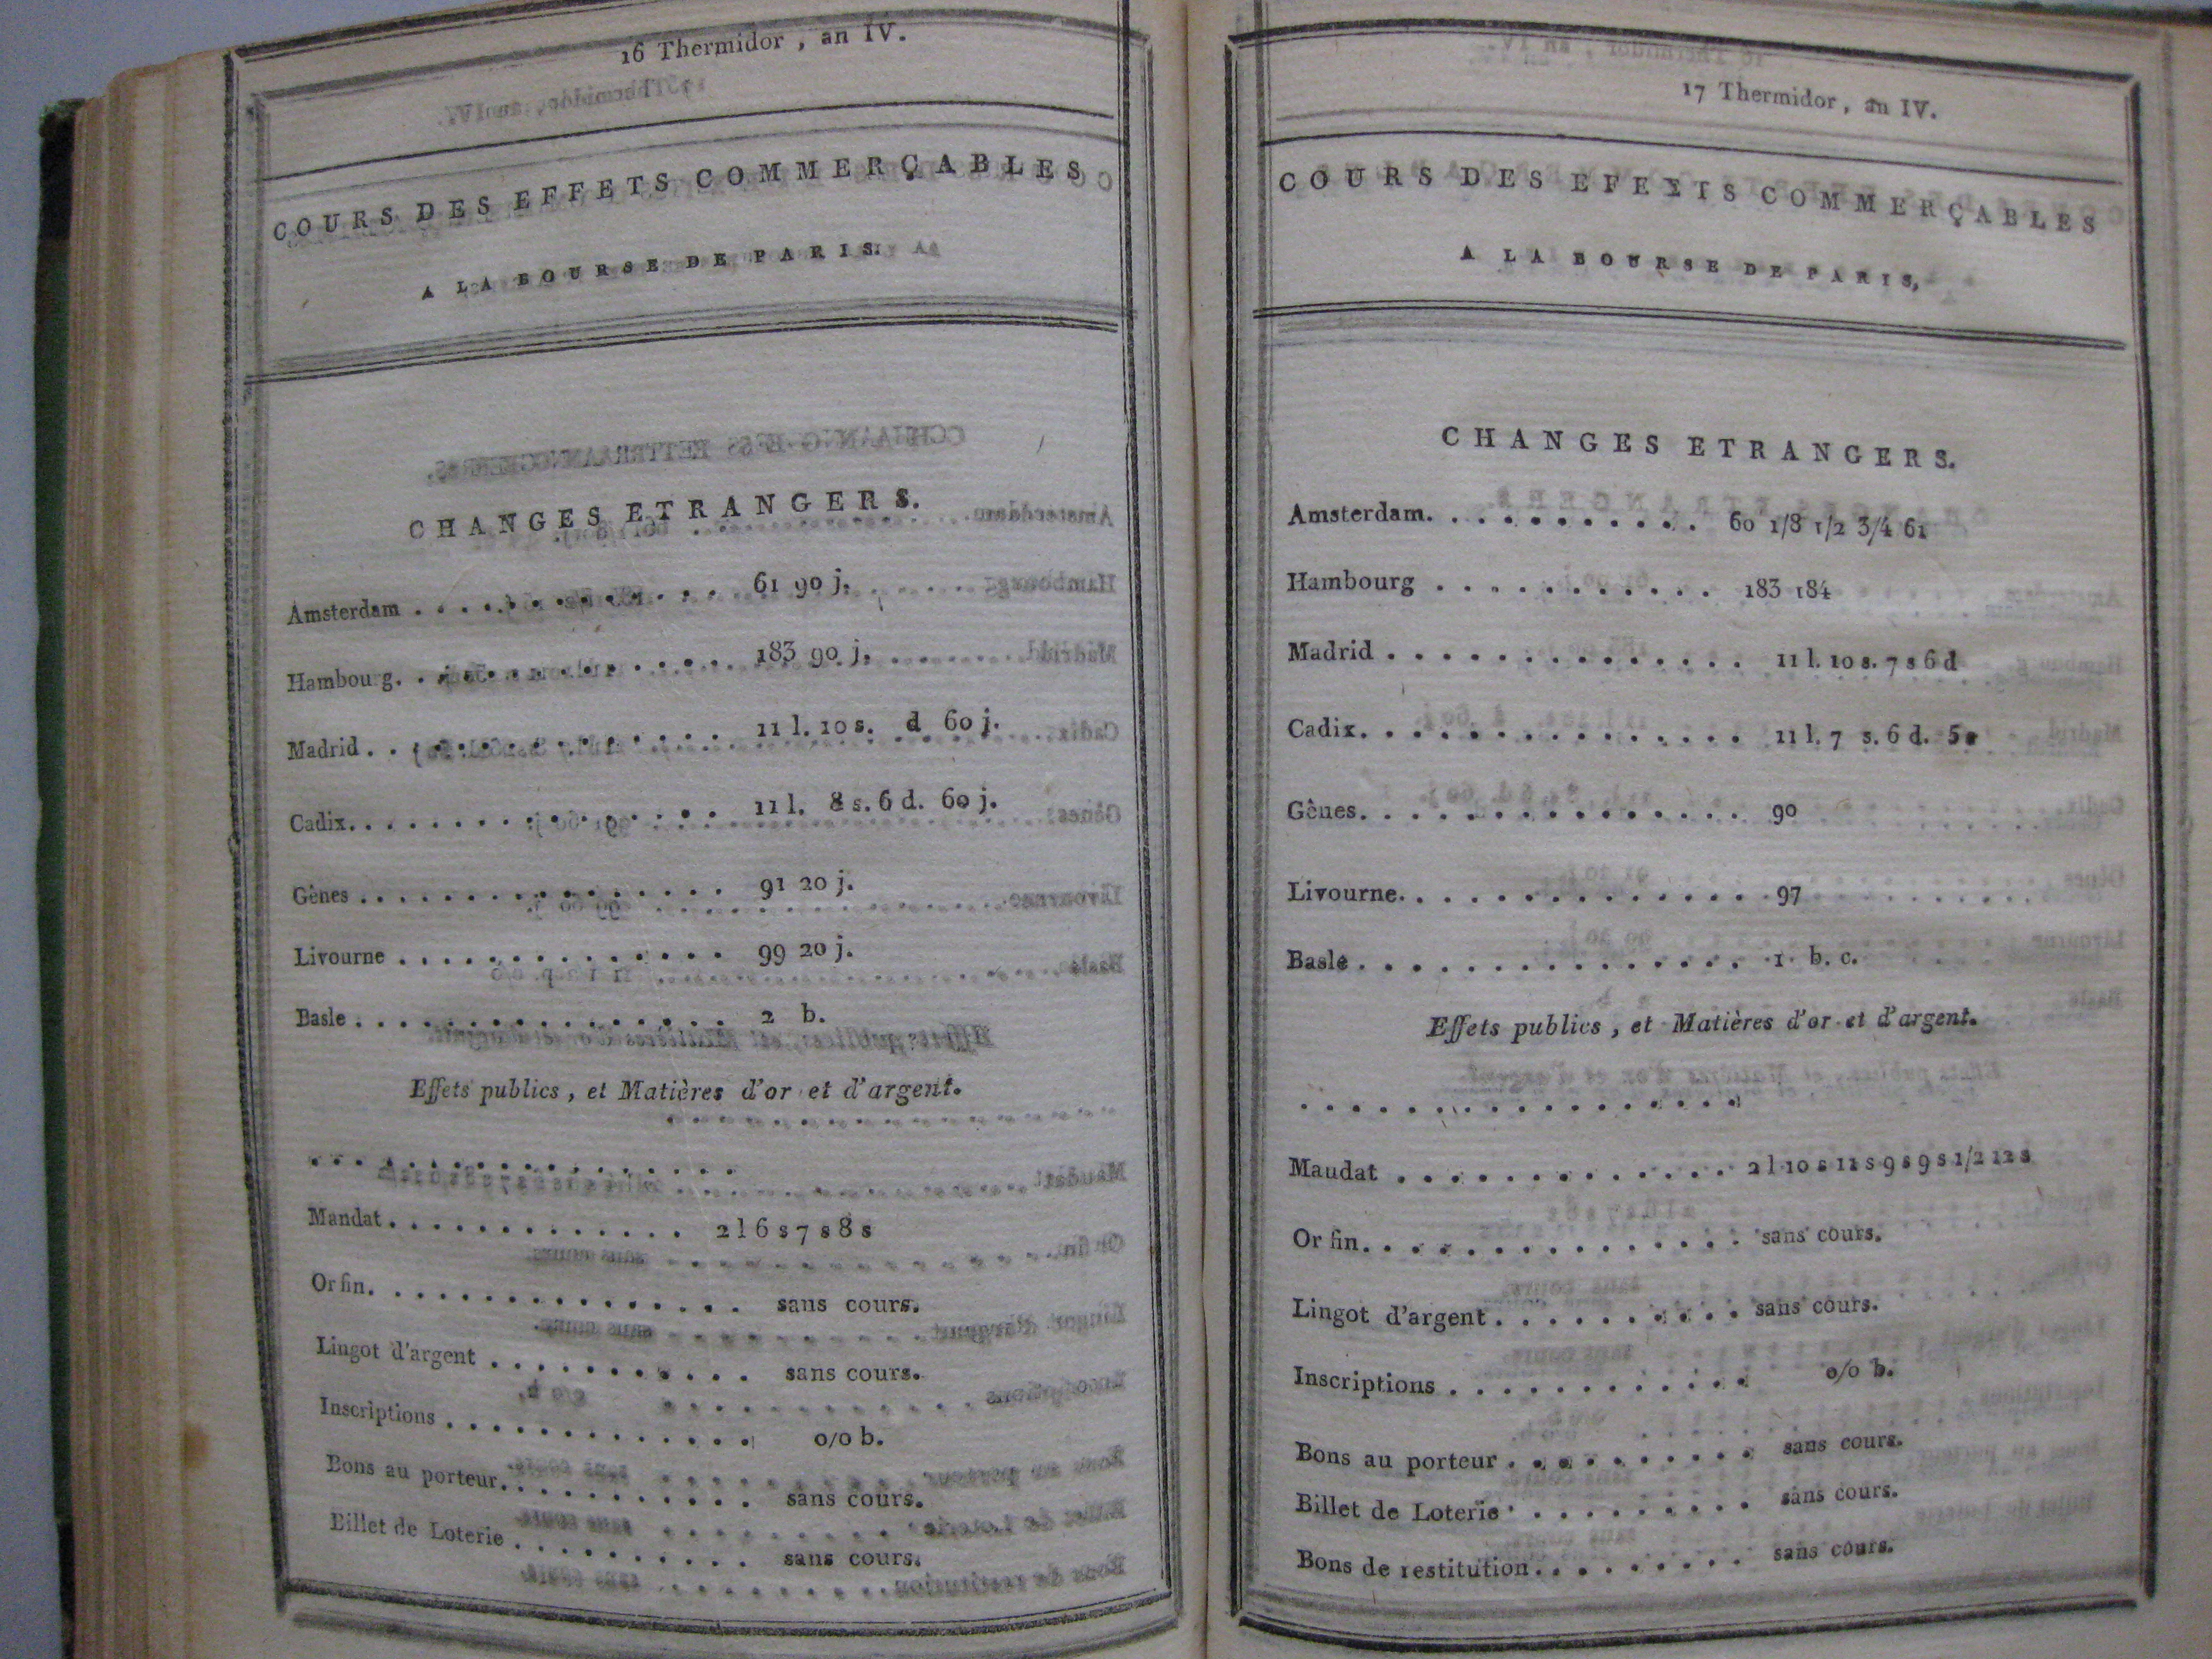 16 Thermidor , an IV.
COURS DES EFFETS COMMERÇABLES
A LA BOURSE DE PARIS.
CHANGES ETRANGERS.
Amsterdam . . . . . . . . . . . . . 61 90 j.
Hambou g. . . . . . . . . . . . . . 183 90 j.
Madrid . . . . . . . . . . . . . . . 11 l. 10 s. d 60 j.
Cadix. . . . . . . . . . . . . . . . 11 l. 8 s. 6 d. 60 j.
Gênes . . . . . . . . . . . . . . . 91 20 j.
Livourne . . . . . . . . . . . . . . 99 20 j.
Basle . . . . . . . . . . . . . . . 2 b.
Effets publics , et Matières d'or et d'argent.
. . . . . . . . . . . . . . . . . .
Mandat . . . . . . . . . . . . . 2 l 6 s 7 s 8 s
Or fin. . . . . . . . . . . . . . . sans cours.
Lingot d'argent . . . . . . . . . . . sans cours.
Inscriptions . . . . . . . . . . . . . 0/0 b.
Bons au porteur. . . . . . . . . . . sans cours.
Billet de Loterie . . . . . . . . . . sans cours.
17 Thermidor , an IV.
COURS DES EFEXTS COMMERÇABLES
A LA BOURSE DE PARIS,
CHANGES ETRANGERS.
Amsterdam. . . . . . . . . . . . 60 1/8 1/2 3/4 61
Hambourg . . . . . . . . . . . 183 184
Madrid . . . . . . . . . . . . . . 11 l. 10 s. 7 s 6 d
Cadix. . . . . . . . . . . . . . . . 11 l. 7 s. 6 d. 5
Gênes. . . . . . . . . . . . . . . . 90
Livourne. . . . . . . . . . . . . . . 97
Basle . . . . . . . . . . . . . . . 1. b. c.
Effets publics , et Matières d'or et d'argent.
. . . . . . . . . . . . . . . . . .
Maudat . . . . . . . . . . . . . 2 l 10 s 11 s 9 s 9 s 1/2 12 s
Or fin. . . . . . . . . . . . . . . . sans cours.
Lingot d'argent . . . . . . . . . . sans cours.
Inscriptions . . . . . . . . . . . . 0/0 b.
Bons au porteur . . . . . . . . . . sans cours.
Billet de Loterie . . . . . . . . . . sans cours.
Bons de restitution. . . . . . . . . sans cours.